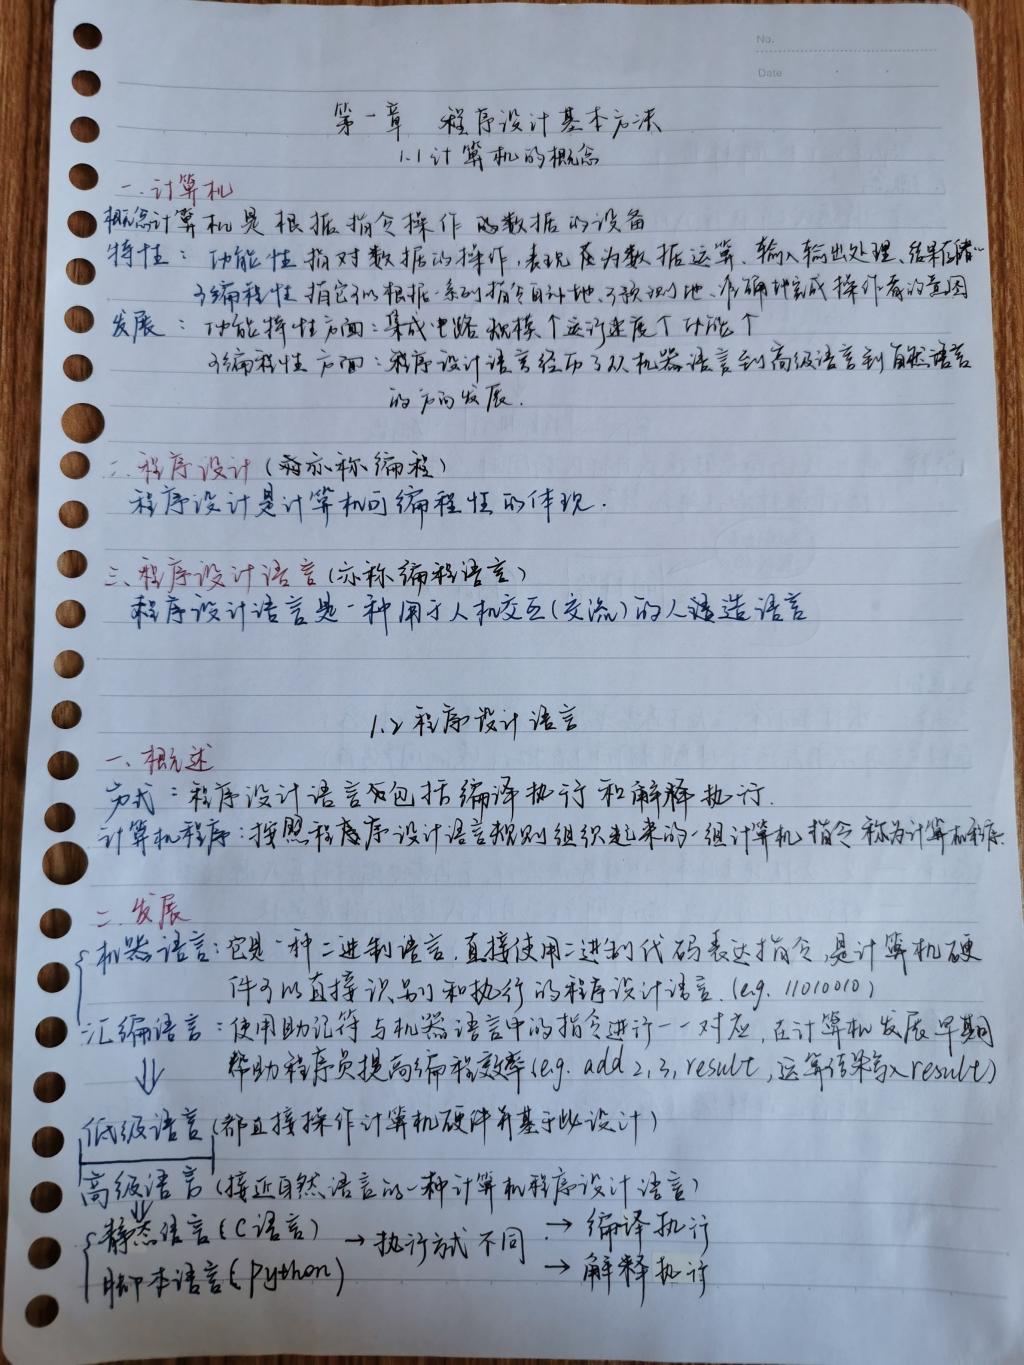 No.
Date
第一章 程序设计基本方法
1.1 计算机的概念
一.计算机
概念计算机是根据指令操作的数据的设备
特性：功能性 指对数据的操作,表现在为数据运算、输入输出处理、结果存储
可编程性 指它可以根据一系列指令自动地、可预测地、准确地完成操作者的意图
发展：功能特性方面：集成电路规模↑运行速度↑功能↑
可编程性方面：程序设计语言经历了从机器语言到高级语言到自然语言
的方向发展.
二.程序设计(亦称编程)
程序设计是计算机可编程性的体现.
三.程序设计语言(亦称编程语言)
程序设计语言是一种用于人机交互(交流)的人造语言
1.2 程序设计语言
一、概述
方式：程序设计语言包括编译执行和解释执行.
计算机程序：按照程序设计语言规则组织起来的一组计算机指令称为计算机程序.
二.发展
机器语言：它是一种二进制语言,直接使用二进制代码表达指令,是计算机硬
件可以直接识别和执行的程序设计语言.(e.g. 11010010)
汇编语言：使用助记符与机器语言中的指令进行一一对应,在计算机发展早期
帮助程序员提高编程效率(e.g. add 2,3,result,运算结果写入result)
⇓
低级语言(都直接操作计算机硬件并基于此设计)
高级语言(接近自然语言的一种计算机程序设计语言)
⇓
静态语言(C语言) →执行方式不同 → 编译执行
脚本语言(python) → 解释执行